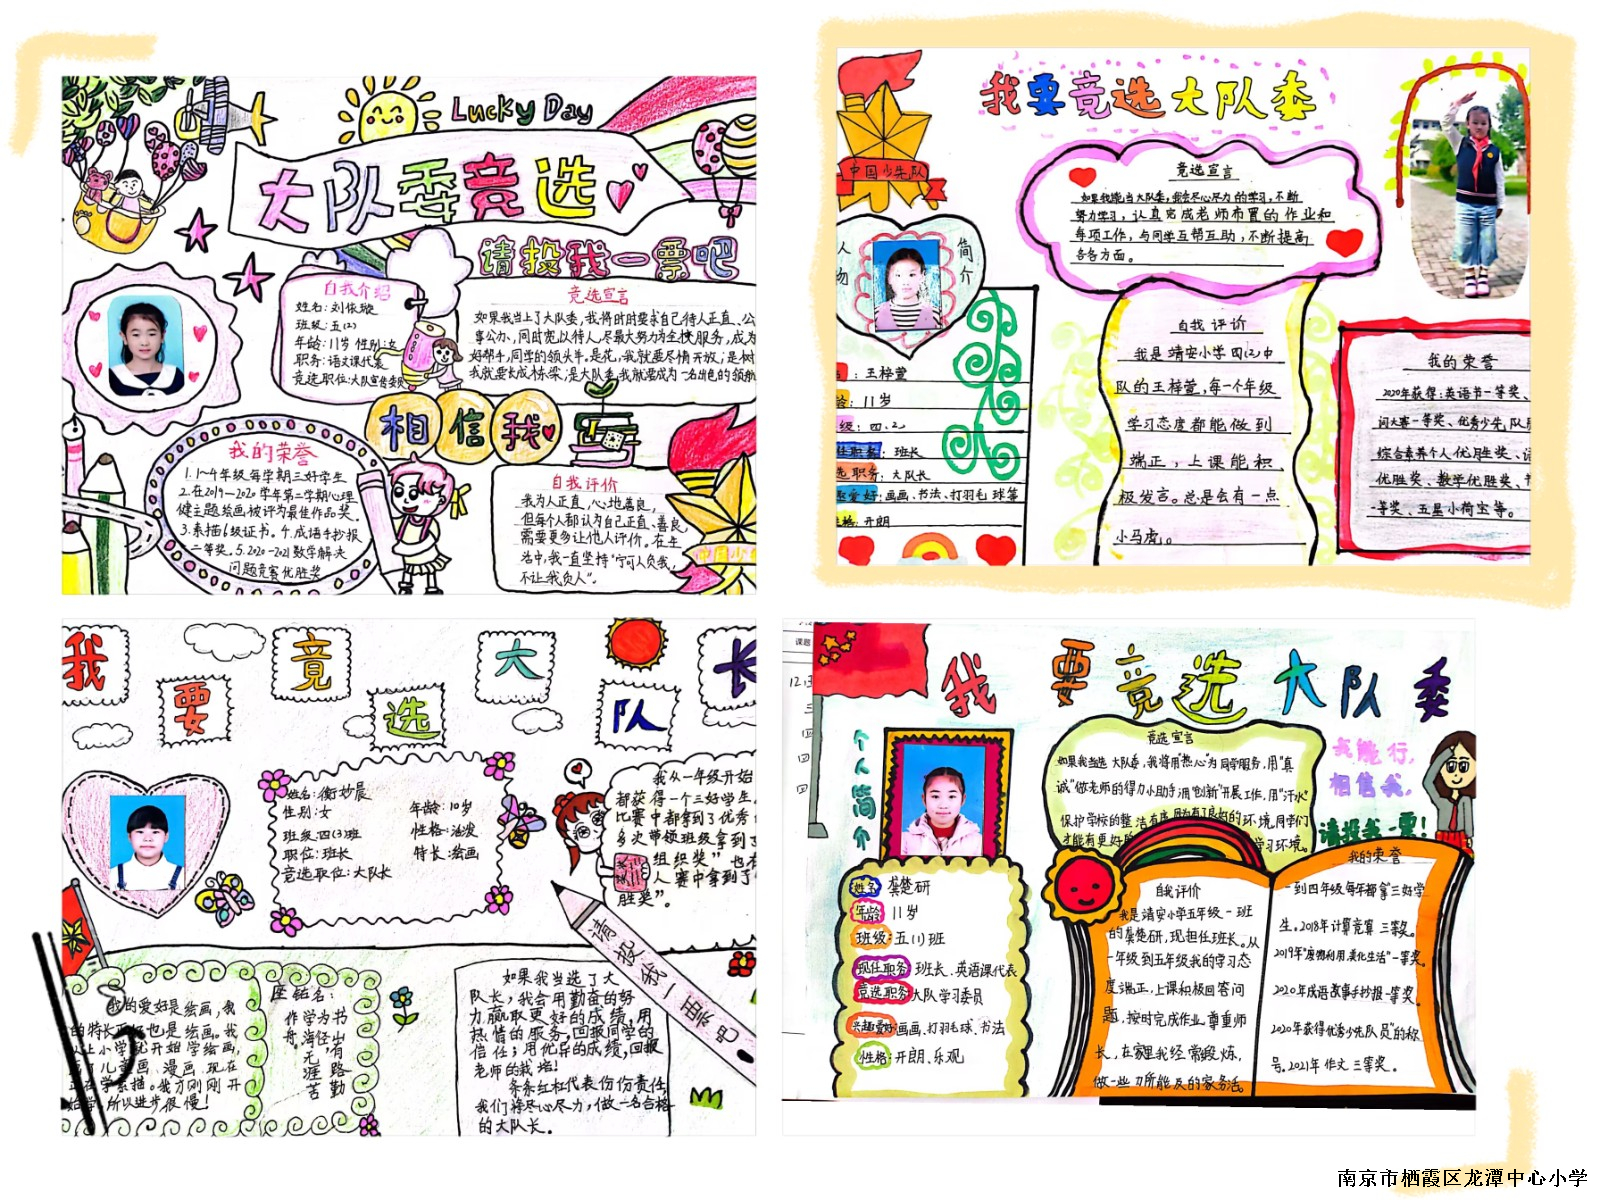 Lucky Day
大队委竞选
请投我一票吧
自我介绍
姓名:刘依璇
班级:五(2)
年龄:11岁 性别:女
职务:语文课代表
竞选职位:大队宣传委员
竞选宣言
如果我当上了大队委,我将时时要求自己待人正直、公
事公办,同时宽以待人,尽最大努力为全校服务,成为
好帮手,同学的领头羊,是花,我就要尽情开放;是树
我就要长成栋梁;是大队委,我就要成为一名出色的领航
相信我
我的荣誉
1.1~4年级每学期三好学生
2.在2019—2020学年第二学期心理
健主题绘画被评为最佳作品奖。
3.素描1级证书。4.成语手抄报
二等奖。5.2020-2021数学解决
问题竞赛优胜奖
自我评价
我为人正直,心地善良,
但每个人都认为自己正直、善良,
需要更多让他人评价。在生
活中,我一直坚持“宁可人负我,
不让我负人”。
中国少先
我要竞选大队委
中国少先队
人物
简介
竞选宣言
如果我能当大队委,我会尽心尽力的学习,不断
努力学习,认真完成老师布置的作业和
每项工作,与同学互帮互助,不断提高
各各方面。
:王梓萱
龄:11岁
级:四、2
任职务:班长
选职务:大队长
趣爱好:画画、书法、打羽毛球等
性格:开朗
自我评价
我是靖安小学四(2)中
队的王梓萱,每一个年级
学习态度都能做到
端正,上课能积、
极发言。总是会有一点
小马虎。
我的荣誉
2020年获得:英语书一等奖、
词大赛一等奖、优秀少先队
综合素养个人优胜奖、
优胜奖、数学优胜奖、
一等奖、五星小荷宝等。
我要竞选大队长
姓名:衡妙晨
性别:女
年龄:10岁
班级:四(3)班
性格:活泼
职位:班长
特长:绘画
竞选职位:大队长
我从一年级开始
都获得一个三好学生。
比赛中都拿到了优秀
多次带领班级拿到了
组织奖”也在
人赛中拿到了
胜奖”。
请投我一票吧
我的爱好是绘画,我
的特长正好也是绘画。我
从上小学就开始学绘画,
画了儿童画,漫画,现在
正在学素描。我才刚刚开
始学,所以进步很慢!
座右铭:
书山有路勤
学海无涯苦
作舟
如果我当选了大
队长,我会用勤奋的努
力赢取更好的成绩,用
热情的服务,回报同学的
信任;用优异的成绩,回报
老师的栽培!
条条红杠代表份份责任,
我们将尽心尽力,做一名合格
的大队长。
我要竞选大队委
个人简介
竞选宣言
如果我当选大队委,我将用“热心”为同学服务,用“真
诚”做老师的得力小助手,用“创新”开展工作,用“汗水”
保护学校的整洁有序,因为有了良好的环境,同学们
才能有更好的学习环境。
我能行,
相信我,
请投我一票!
姓名 龚楚研
年龄 11岁
班级:五(1)班
现任职务 班长、英语课代表
竞选职务 大队学习委员
兴趣爱好 画画、打羽毛球、书法
性格:开朗、乐观
自我评价
我是靖安小学五年级一班
的龚楚研,现担任班长。从
一年级到五年级我的学习态
度端正,上课积极回答问
题,按时完成作业,尊重师
长,在家里我经常锻炼,
做一些力所能及的家务活。
我的荣誉
一到四年级每年都拿三好学
生。2018年计算竞赛三等奖。
2019年“废物利用,美化生活”一等奖。
2020年成语故事手抄报一等奖。
2020年获得“优秀少先队员”的称
号。2021年作文三等奖。
南京市栖霞区龙潭中心小学